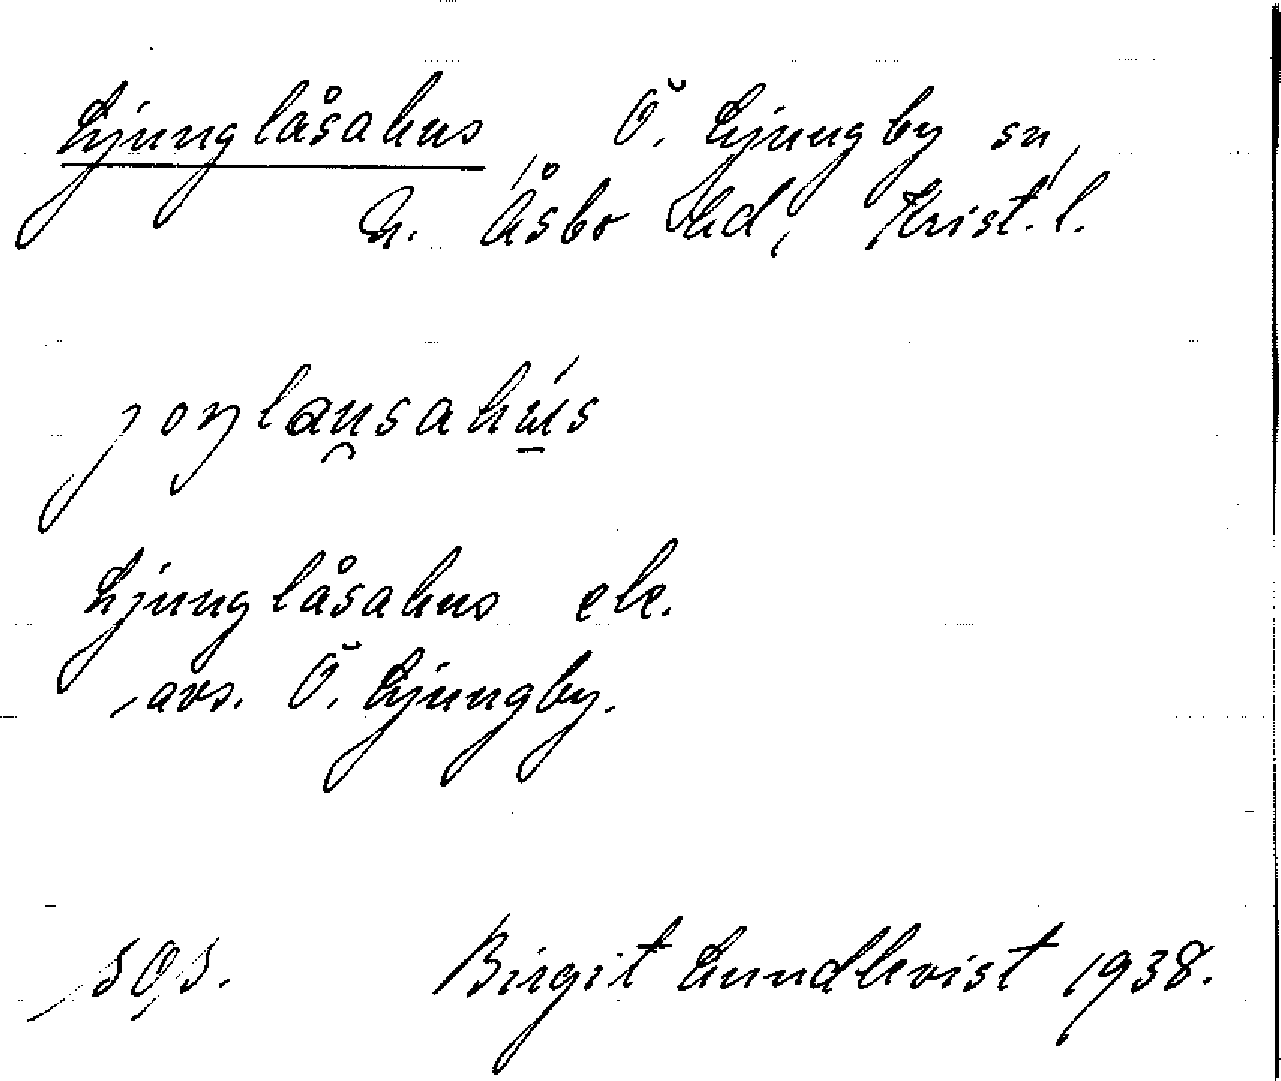 Ljunglåsahus, Ö. Ljungby sn,
N. Åsbo hd, Krist. l.
joŋlau̯sahú̱s
Ljunglåsahus ele.
avs. Ö. Ljungby.
SOS. Birgit Lundkvist 1938.